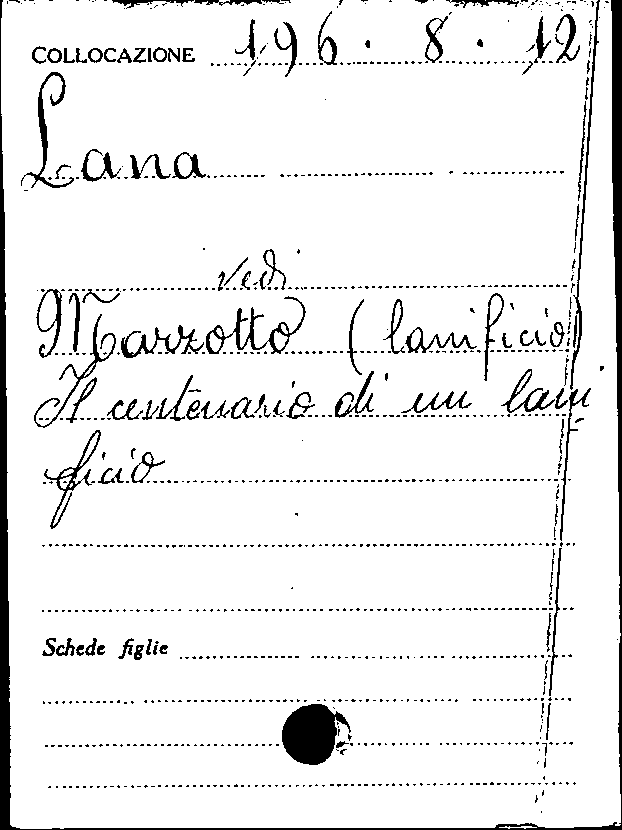 COLLOCAZIONE 196. 8. 12
Lana
vedi
Marzotto (lanificio)
Il centenario di un lani
ficio
Schede figlie